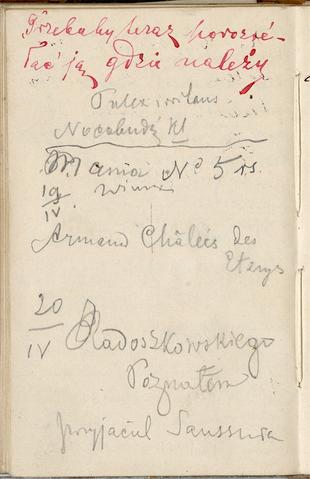 Trzebaby teraz porozsé-
łać ją gdzie należy
Pulex irritans
Nocobudź Kl
Mania № 5 rs.
19/IV winna
Armand Châlets des
Etangs
20/IV Radoszkowskiego
Poznałem
przyjaciel Saussura